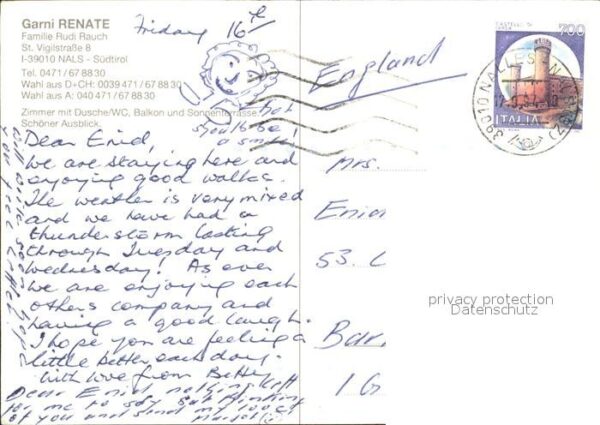 Garni RENATE
Familie Rudi Rauch
St. Vigilstraße 8
I-39010 NALS - Südtirol
Tel. 0471/67 88 30
Wahl aus D+CH: 0039 471/67 88 30
Wahl aus A: 040 471/67 88 30
Zimmer mit Dusche/WC, Balkon und Sonnenterrasse.
Schöner Ausblick.
Friday 16th
England
hat
should be
a smile!
Dear Enid,
We are staying here and
enjoying good walks.
The weather is very mixed
and we have had a
thunderstorm lasting
through Tuesday and
Wednesday! As ever
we are enjoying each
others company and
having a good laugh.
I hope you are feeling a
little better each day.
With love from Betty
Dear Enid nothing left
for me to say but thinking
of you and send my love
will write soon
you feel better.
Mrs.
Enid
53. C
Bar
1 G
CASTELLO DI
700
ITALIA
39010 NALLES
privacy protection
Datenschutz